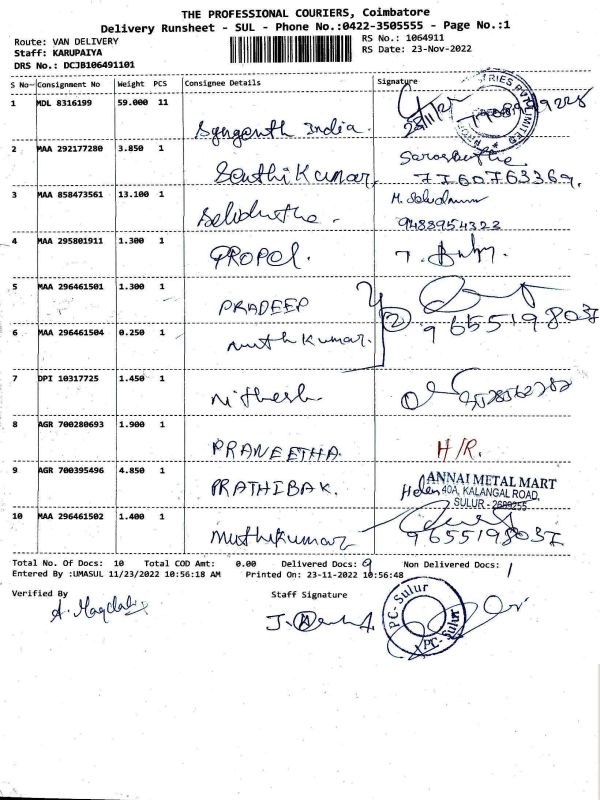 THE PROFESSIONAL COURIERS, Coimbatore
Delivery Runsheet - SUL - Phone No.:0422-3505555 - Page No.:1
Route: VAN DELIVERY RS No.: 1064911
Staff: KARUPAIYA RS Date: 23-Nov-2022
DRS No.: DCJB106491101
S No Consignment No Weight PCS Consignee Details Signature
1 MDL 8316199 59.000 11
India.
2 MAA 292177280 3.850 1
Senthil Kumar 7760763369.
3 MAA 858473561 13.100 1
9488954323
4 MAA 295801911 1.300 1
PROPEL.
5 MAA 296461501 1.300 1
PRADEEP 2 9655198037
6 MAA 296461504 0.250 1
Muthkumar
7 DPI 10317725 1.450 1
Nithesh
8 AGR 700280693 1.900 1
PRANEETHA. H/R.
9 AGR 700395496 4.850 1
PRATHIBAK. Helen ANNAI METAL MART
40A, KALANGAL ROAD,
SULUR -
10 MAA 296461502 1.400 1
Muthukumar 9655198037
Total No. Of Docs: 10 Total COD Amt: 0.00 Delivered Docs: 9 Non Delivered Docs: 1
Entered By :UMASUL 11/23/2022 10:56:18 AM Printed On: 23-11-2022 10:56:48
Verified By Staff Signature
PC- Sulur
PC- Sulur